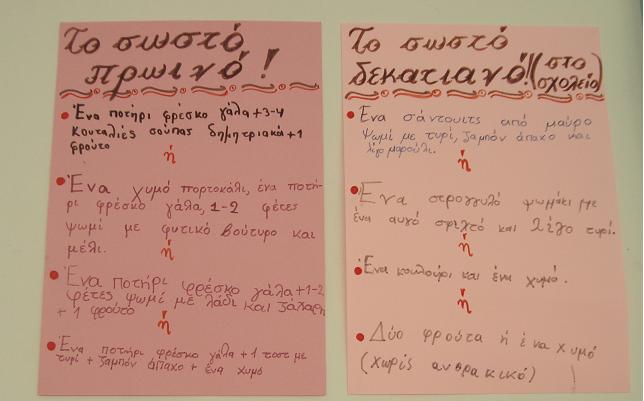 Το σωστό
πρωινό!
Ένα ποτήρι φρέσκο γάλα +3-4
κουταλιές σούπας δημητριακά +1
φρούτο
ή
Ένα χυμό πορτοκάλι, ένα ποτή-
ρι φρέσκο γάλα, 1-2 φέτες
ψωμί με φυτικό βούτυρο και
μέλι.
ή
Ένα ποτήρι φρέσκο γάλα +1-2
φέτες ψωμί με λάδι και ζάχαρη
+ 1 φρούτο
ή
Ένα ποτήρι φρέσκο γάλα +1 τοστ με
τυρί + ζαμπόν άπαχο + ένα χυμό
Το σωστό
δεκατιανό! (στο
σχολείο)
Ένα σάντουιτς από μαύρο
ψωμί με τυρί, ζαμπόν άπαχο και
λίγο μαρούλι.
ή
Ένα στρογγυλό ψωμάκι με
ένα αυγό σφιχτό και λίγο τυρί.
ή
Ένα κουλούρι και ένα χυμό.
ή
Δύο φρούτα ή ένα χυμό
(χωρίς ανθρακικό)